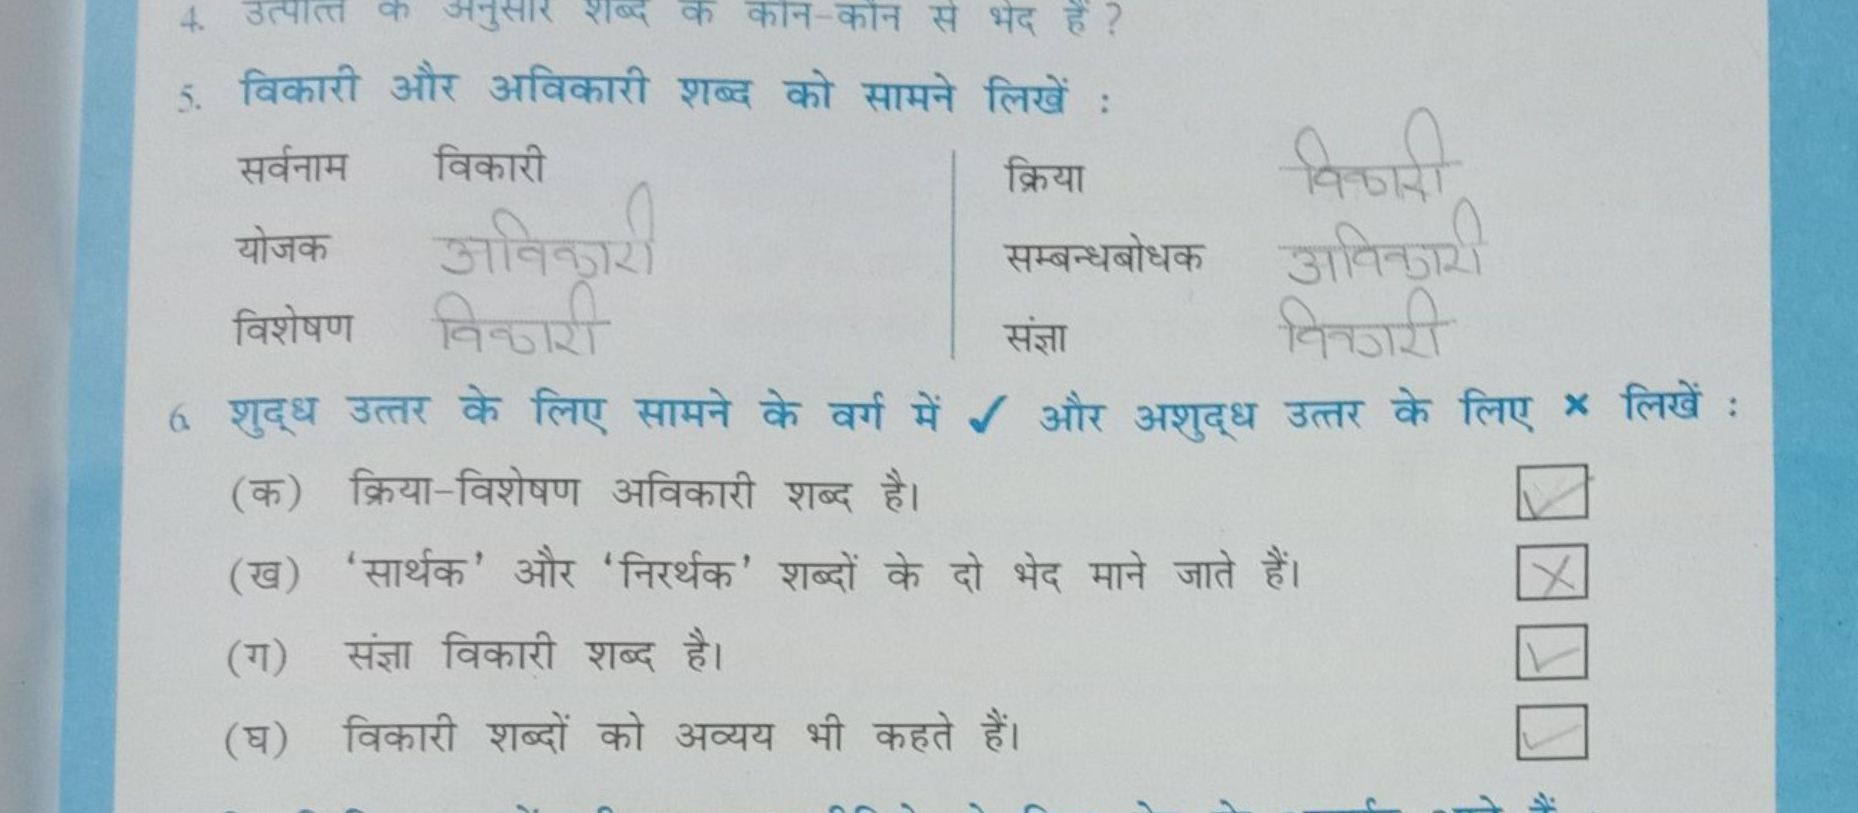 4. उत्पत्ति के अनुसार शब्द के कौन-कौन से भेद हैं ?
5. विकारी और अविकारी शब्द को सामने लिखें :
सर्वनाम विकारी क्रिया विकारी
योजक अविकारी सम्बन्धबोधक अविकारी
विशेषण विकारी संज्ञा विकारी
6. शुद्ध उत्तर के लिए सामने के वर्ग में ✓ और अशुद्ध उत्तर के लिए × लिखें :
(क) क्रिया-विशेषण अविकारी शब्द है। ✓
(ख) ‘सार्थक’ और ‘निरर्थक’ शब्दों के दो भेद माने जाते हैं। ×
(ग) संज्ञा विकारी शब्द है। ✓
(घ) विकारी शब्दों को अव्यय भी कहते हैं। ✓